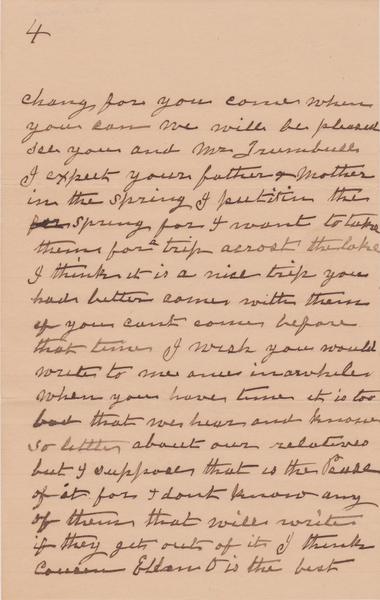 4
chang for you come when
you can we will be pleased
see you and Mr Trumbull
I expect your father & Mother
in the spring I put it in the
spring for I want to take
them for a trip acrost the lake
I think it is a nice trip you
had better come with them
if you cant come before
that time I wish you would
write to me once in a while
when you have time it is too
bad that we hear and know
so little about our relatives
but I suppose that is the
of it for I dont know any
of them that will write
if they get out of it I think
Cousin Ellen is the best